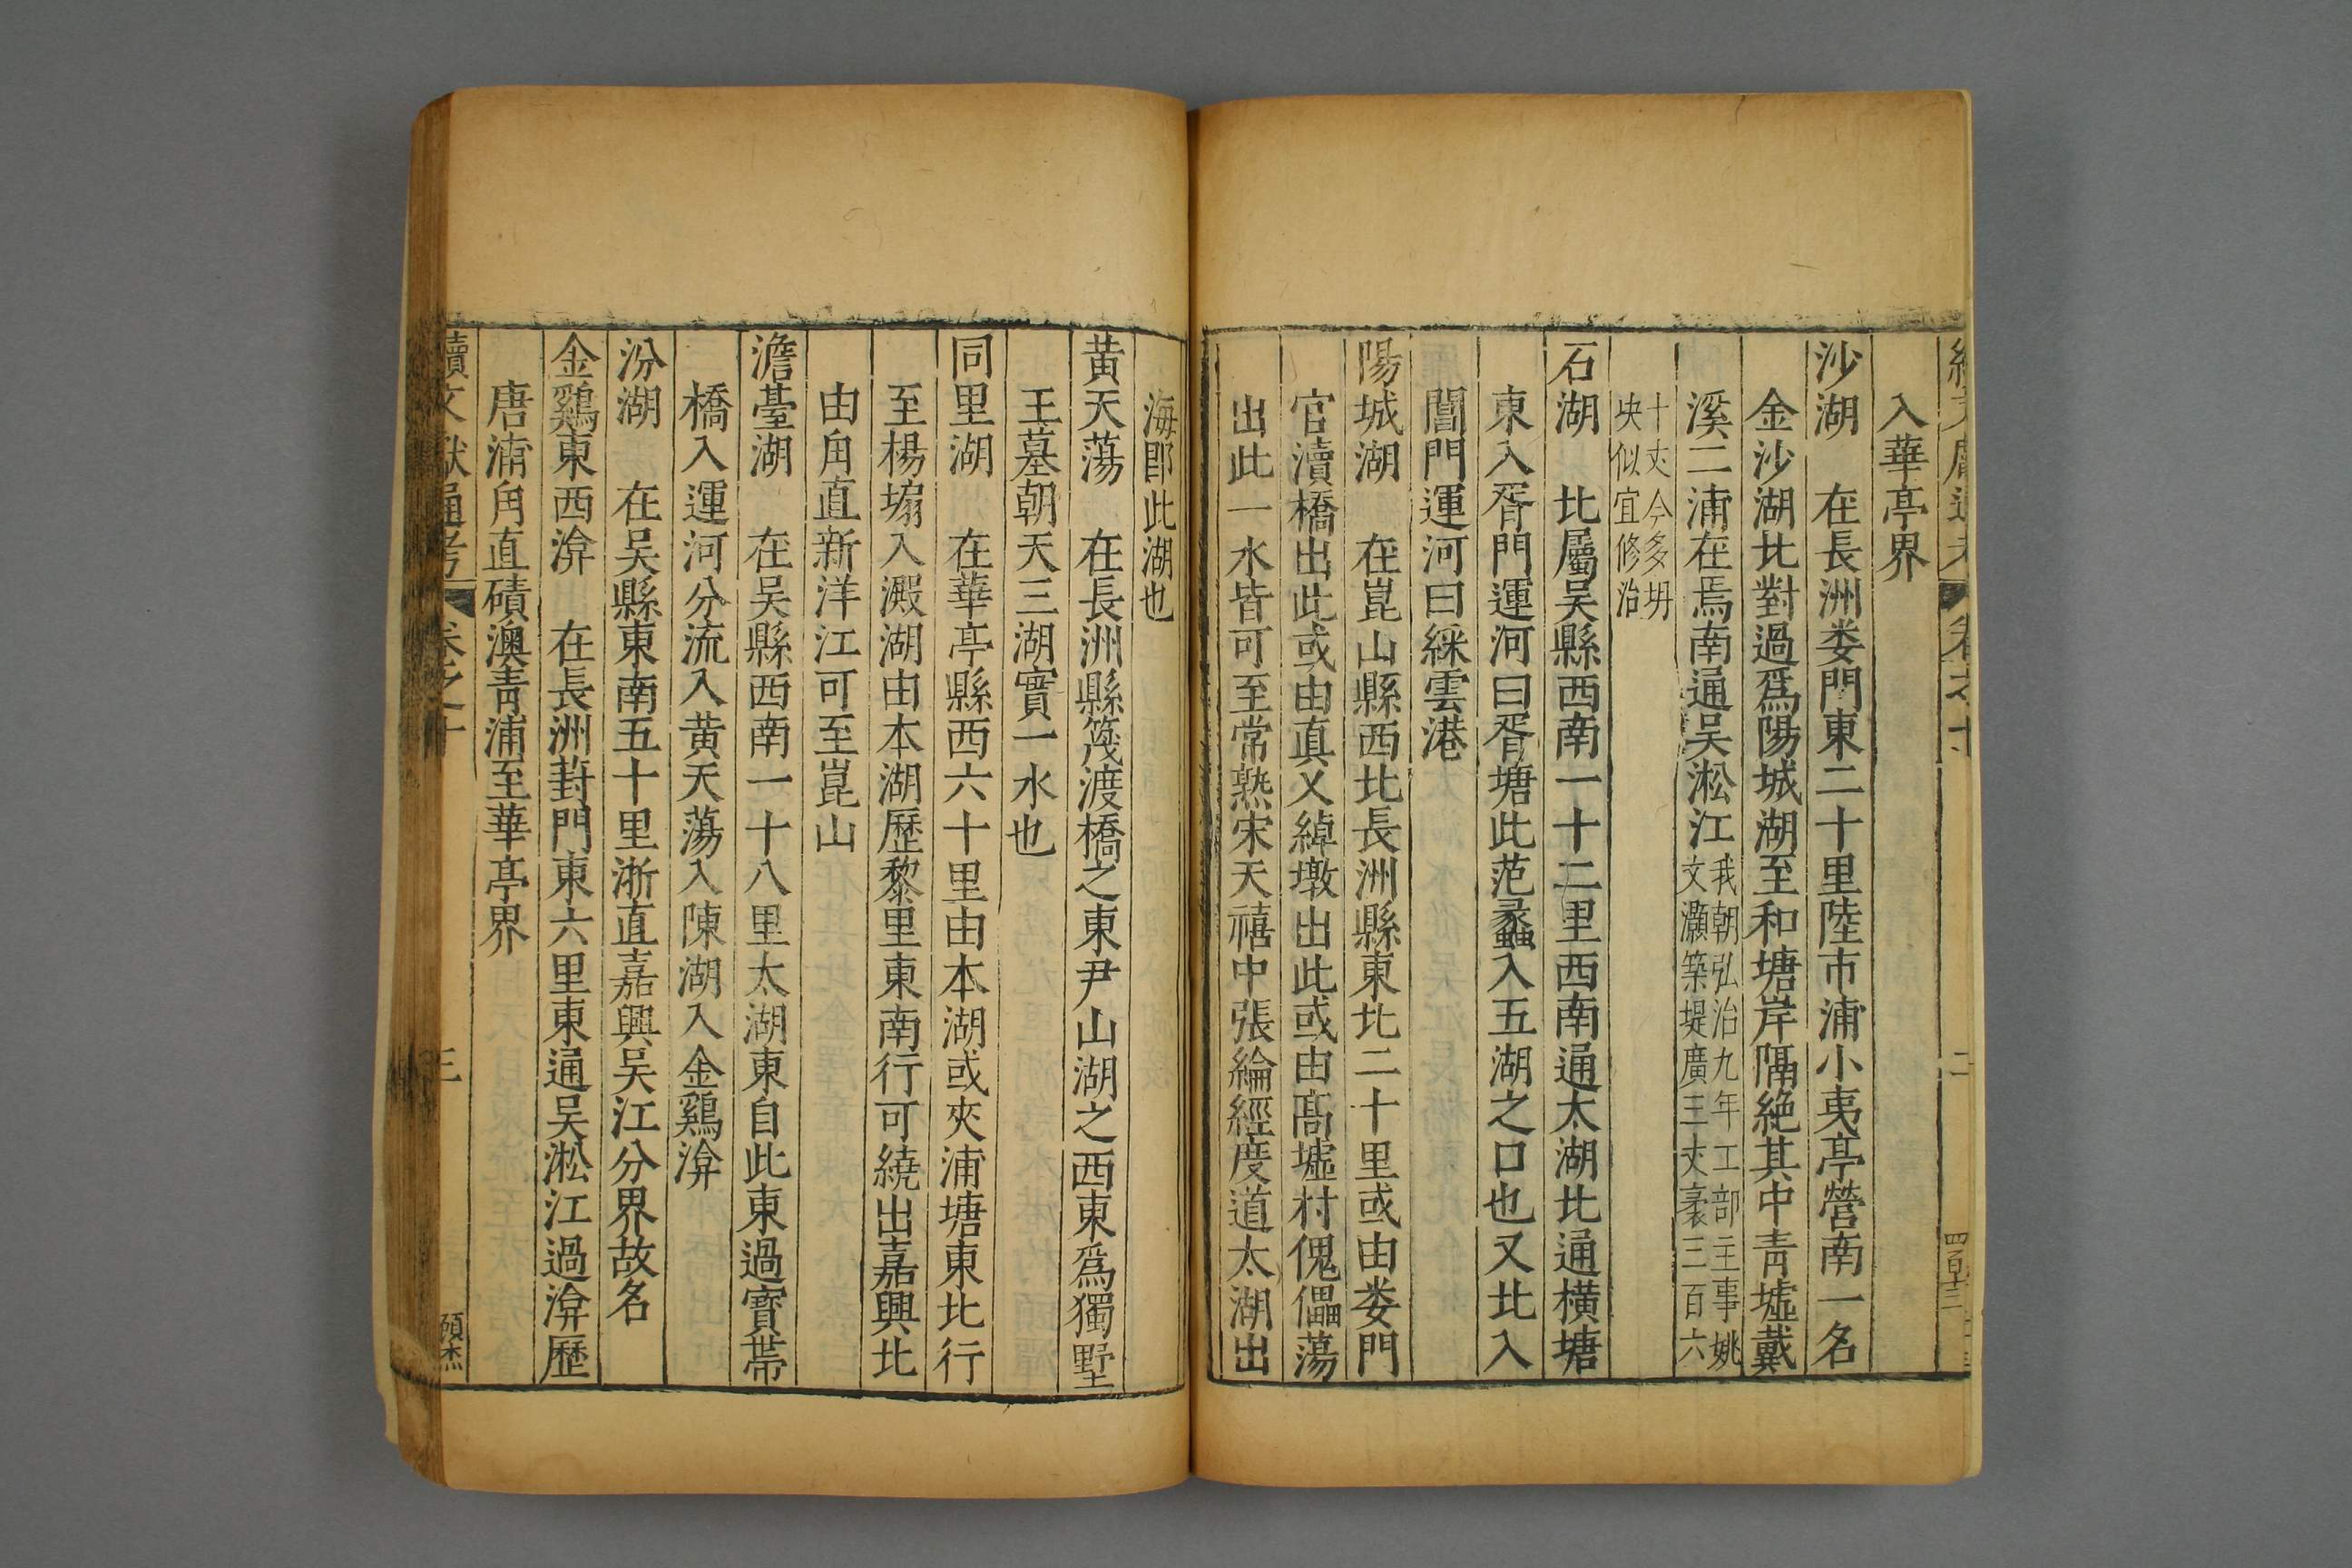 入華亭界
沙湖 在長洲娄門東二十里陸市浦小夷亭營南一名
金沙湖北對過爲陽城湖至和塘岸隔絶其中青墟戴
溪二浦在焉南通吴淞江我朝弘治九年工部主事姚
文灝築堤廣三丈袤三百六
十丈今多坍
坱似宜修治
石湖 北屬吴縣西南一十二里西南通太湖北通横塘
東入胥門運河曰胥塘此范蠡入五湖之口也又北入
閶門運河曰綵雲港
陽城湖 在崑山縣西北長洲縣東北二十里或由娄門
官瀆橋出此或由真义綽墩出此或由髙墟村傀儡蕩
出此一水皆可至常熟宋天禧中張綸經度道太湖出
海郎此湖也
黄天蕩 在長洲縣筏渡橋之東尹山湖之西東爲獨墅
王墓朝天三湖實一水也
同里湖 在華亭縣西六十里由本湖或夾浦塘東北行
至楊塴入澱湖由本湖歷黎里東南行可繞出嘉興北
由甪直新洋江可至崑山
澹臺湖 在吴縣西南一十八里太湖東自此東過寳帶
橋入運河分流入黄天蕩入陳湖入金鷄渰
汾湖 在吴縣東南五十里浙直嘉興吴江分界故名
金鷄東西渰 在長洲葑門東六里東通吴淞江過渰歷
唐浦甪直磧澳青浦至華亭界
續文獻通考 卷之十 三